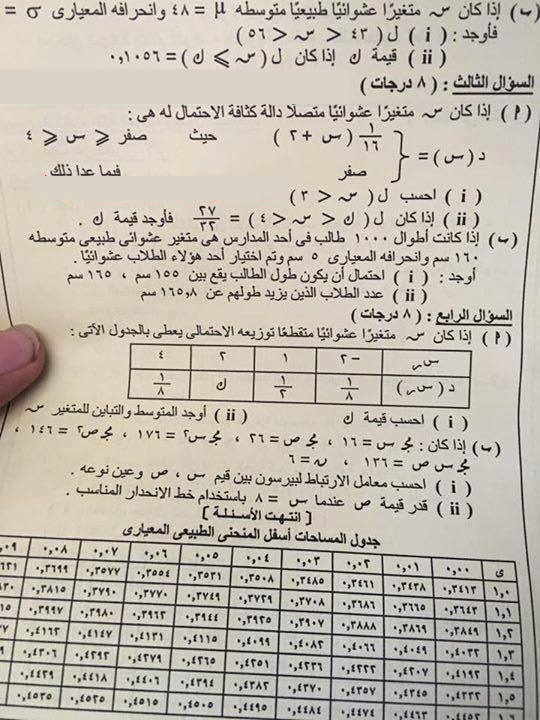 (ب) إذا كان س متغيرًا عشوائيًا طبيعيًا متوسطه μ = ٤٨ وانحرافه المعيارى σ =
فأوجد : ( i ) ل ( ٤٣ < س < ٥٦ )
( ii ) قيمة ك إذا كان ل ( س ⩾ ك ) = ٠,١٠٥٦
السؤال الثالث : ( ٨ درجات )
(أ) إذا كان س متغيرًا عشوائيًا متصلًا دالة كثافة الاحتمال له هى :
د ( س ) = { ١/١٦ ( س + ٢ ) حيث صفر ⩽ س ⩽ ٤
صفر فيما عدا ذلك.
( i ) احسب ل ( س < ٣ )
( ii ) إذا كان ل ( ك < س < ٤ ) = ٢٧/٣٢ فأوجد قيمة ك .
(ب) إذا كانت أطوال ١٠٠٠ طالب فى أحد المدارس هى متغير عشوائى طبيعي متوسطه
١٦٠ سم وانحرافه المعيارى ٥ سم وتم اختيار أحد هؤلاء الطلاب عشوائيًا .
أوجد : ( i ) احتمال أن يكون طول الطالب يقع بين ١٥٥ سم ، ١٦٥ سم
( ii ) عدد الطلاب الذين يزيد طولهم عن ١٦٥,٨ سم
السؤال الرابع : ( ٨ درجات )
(أ) إذا كان س متغيرًا عشوائيًا متقطعًا توزيعه الاحتمالى يعطى بالجدول الآتى :
س ر | −٢ | ١ | ٢ | ٤
د ( س ر ) | ١/٨ | ١/٢ | ك | ١/٨
( i ) احسب قيمة ك ( ii ) أوجد المتوسط والتباين للمتغير س
(ب) إذا كان : مجـ س = ١٦ ، مجـ ص = ٢٦ ، مجـ س٢ = ١٧٦ ، مجـ ص٢ = ١٤٦ ،
مجـ س ص = ١٣٦ ، ن = ٦
( i ) احسب معامل الارتباط لبيرسون بين قيم س ، ص وعين نوعه .
( ii ) قدر قيمة ص عندما س = ٨ باستخدام خط الانحدار المناسب .
[ انتهت الأسئلة ]
جدول المساحات أسفل المنحنى الطبيعي المعيارى
ى | ٠,٠٠ | ٠,٠١ | ٠,٠٢ | ٠,٠٣ | ٠,٠٤ | ٠,٠٥ | ٠,٠٦ | ٠,٠٧ | ٠,٠٨ | ٠,٠٩
١,٠ | ٠,٣٤١٣ | ٠,٣٤٣٨ | ٠,٣٤٦١ | ٠,٣٤٨٥ | ٠,٣٥٠٨ | ٠,٣٥٣١ | ٠,٣٥٥٤ | ٠,٣٥٧٧ | ٠,٣٦٩٩
١,١ | ٠,٣٦٤٣ | ٠,٣٦٦٥ | ٠,٣٦٨٦ | ٠,٣٧٠٨ | ٠,٣٧٢٩ | ٠,٣٧٤٩ | ٠,٣٧٧٠ | ٠,٣٧٩٠ | ٠,٣٨١٥
١,٢ | ٠,٣٨٤٩ | ٠,٣٨٦٩ | ٠,٣٨٨٨ | ٠,٣٩٠٧ | ٠,٣٩٢٥ | ٠,٣٩٤٤ | ٠,٣٩٦٢ | ٠,٣٩٨٠ | ٠,٣٩٩٧
١,٣ | ٠,٤٠٣٢ | ٠,٤٠٤٩ | ٠,٤٠٦٦ | ٠,٤٠٨٢ | ٠,٤٠٩٩ | ٠,٤١١٥ | ٠,٤١٣١ | ٠,٤١٤٧ | ٠,٤١٦٢
١,٤ | ٠,٤١٩٢ | ٠,٤٢٠٧ | ٠,٤٢٢٢ | ٠,٤٢٣٦ | ٠,٤٢٥١ | ٠,٤٢٦٥ | ٠,٤٢٧٩ | ٠,٤٢٩٢ | ٠,٤٣٠٦
١,٥ | ٠,٤٣٣٢ | ٠,٤٣٤٥ | ٠,٤٣٥٧ | ٠,٤٣٧٠ | ٠,٤٣٨٢ | ٠,٤٣٩٤ | ٠,٤٤٠٦ | ٠,٤٤١٨ | ٠,٤٤٢٩
٠,٤٤٦٣ | ٠,٤٤٧٤ | ٠,٤٤٨٤ | ٠,٤٤٩٥ | ٠,٤٥٠٥ | ٠,٤٥١٥ | ٠,٤٥٢٥ | ٠,٤٥٣٥